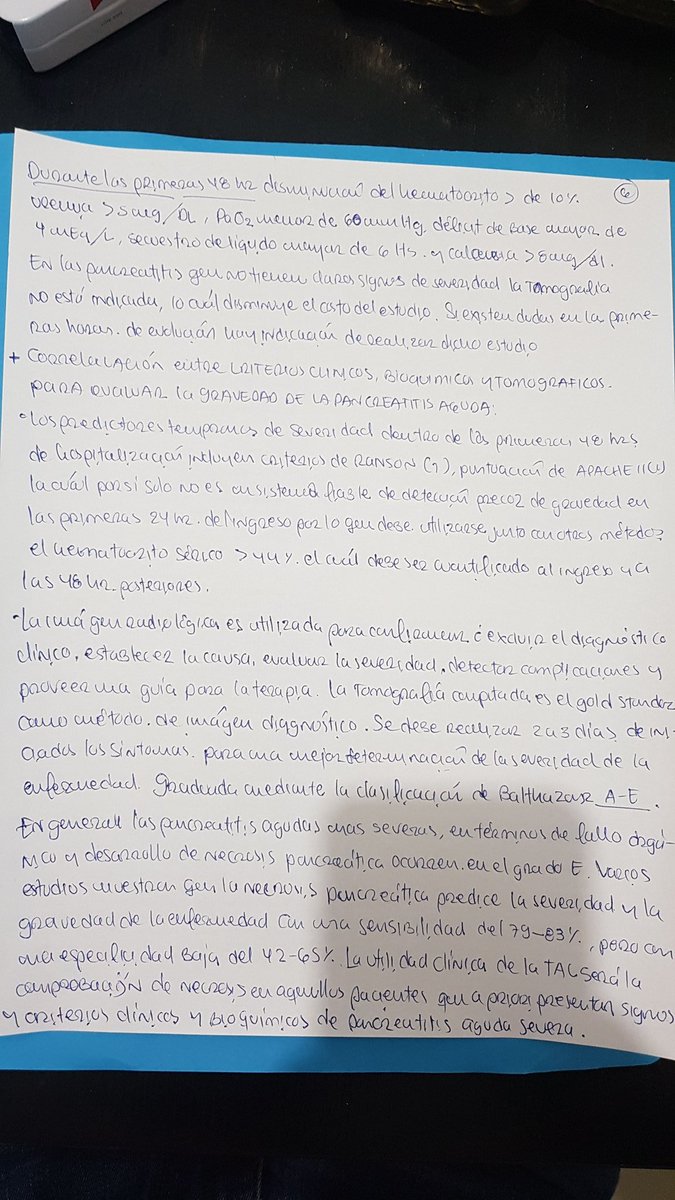 Durante las primeras 48 hz disminución del hematocrito > de 10%. 6
uremia > 5mg/DL, PaO2 menor de 60mmHg, déficit de Base mayor de
4 mEq/L, secuestro de líqudo mayor de 6 Hs. y calcemia > 8mg/dl.
EN las pancreatitis qeu no tienen claros signos de severidad la Tomografía
NO está indicada, lo cuál disminuye el costo del estudio. Si existen dudas en las prime-
ras horas. de evolución hay indicación de realizar dicho estudio
+ CORRELALACIÓN entre CRITERIOS CLINICOS, BIOQUIMICOS Y TOMOGRAFICOS.
PARA EVALUAR la GRAVEDAD DE LA PANCREATITIS AGUDA:
• Los predictores tempranos de severidad dentro de las primeras 48 hrs
de hospitalización incluyen criterios de RANSON (7), puntuación de APACHE II
la cuál por si solo no es un sistema fiable de detección precoz de gravedad en
las primeras 24 hz. del ingreso por lo qeu debe utilizarse junto con otros métodos
el hematocrito sérico > 44%. el cuál debe ser cuantificado al ingreso y a
las 48 hz. posteriores.
• La imágen radiológica es utilizada para confirmar ó excluir el diagnóstico
clínico, establecer la causa, evaluar la severidad, detectar complicaciones y
proveer una guía para la terapia. la Tomografía computada es el gold standar
como método. de imágen diagnóstico. Se debe Realizar 2 a 3 días de ini
ciados los síntomas. para una mejor determinación de la severidad de la
enfermedad. Graduada mediante la clasificación de Balthazar A-E.
En general las pancreatitis agudas mas severas, en términos de fallo orgá-
nico y desarrollo de necrosis pancreática ocurren. en el grado E. Varios
estudios muestran qeu la necrosis pancreática predice la severidad y la
gravedad de la enfermedad con una sensibilidad del 79-83%, pero con
una especificidad Baja del 42-65%. La utilidad clínica de la TAC será la
comprobación de necrosis en aquellos pacientes qeu a priori presentan signos
y criterios clínicos y Bioquímicos de pancreatitis aguda severa.